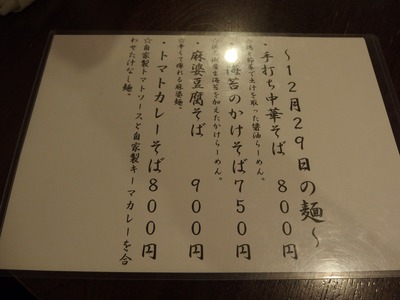 ～12月29日の麺～
・手打ち中華そば　800円
野菜で出汁を取った醤油らーめん。
海苔のかけそば750円
産生海苔を加えたかけらーめん。
・麻婆豆腐そば　900円
☆辛くて痺れる麻婆麺。
・トマトカレーそば800円
☆自家製トマトソースと自家製キーマカレーを合
わせた汁なし麺。